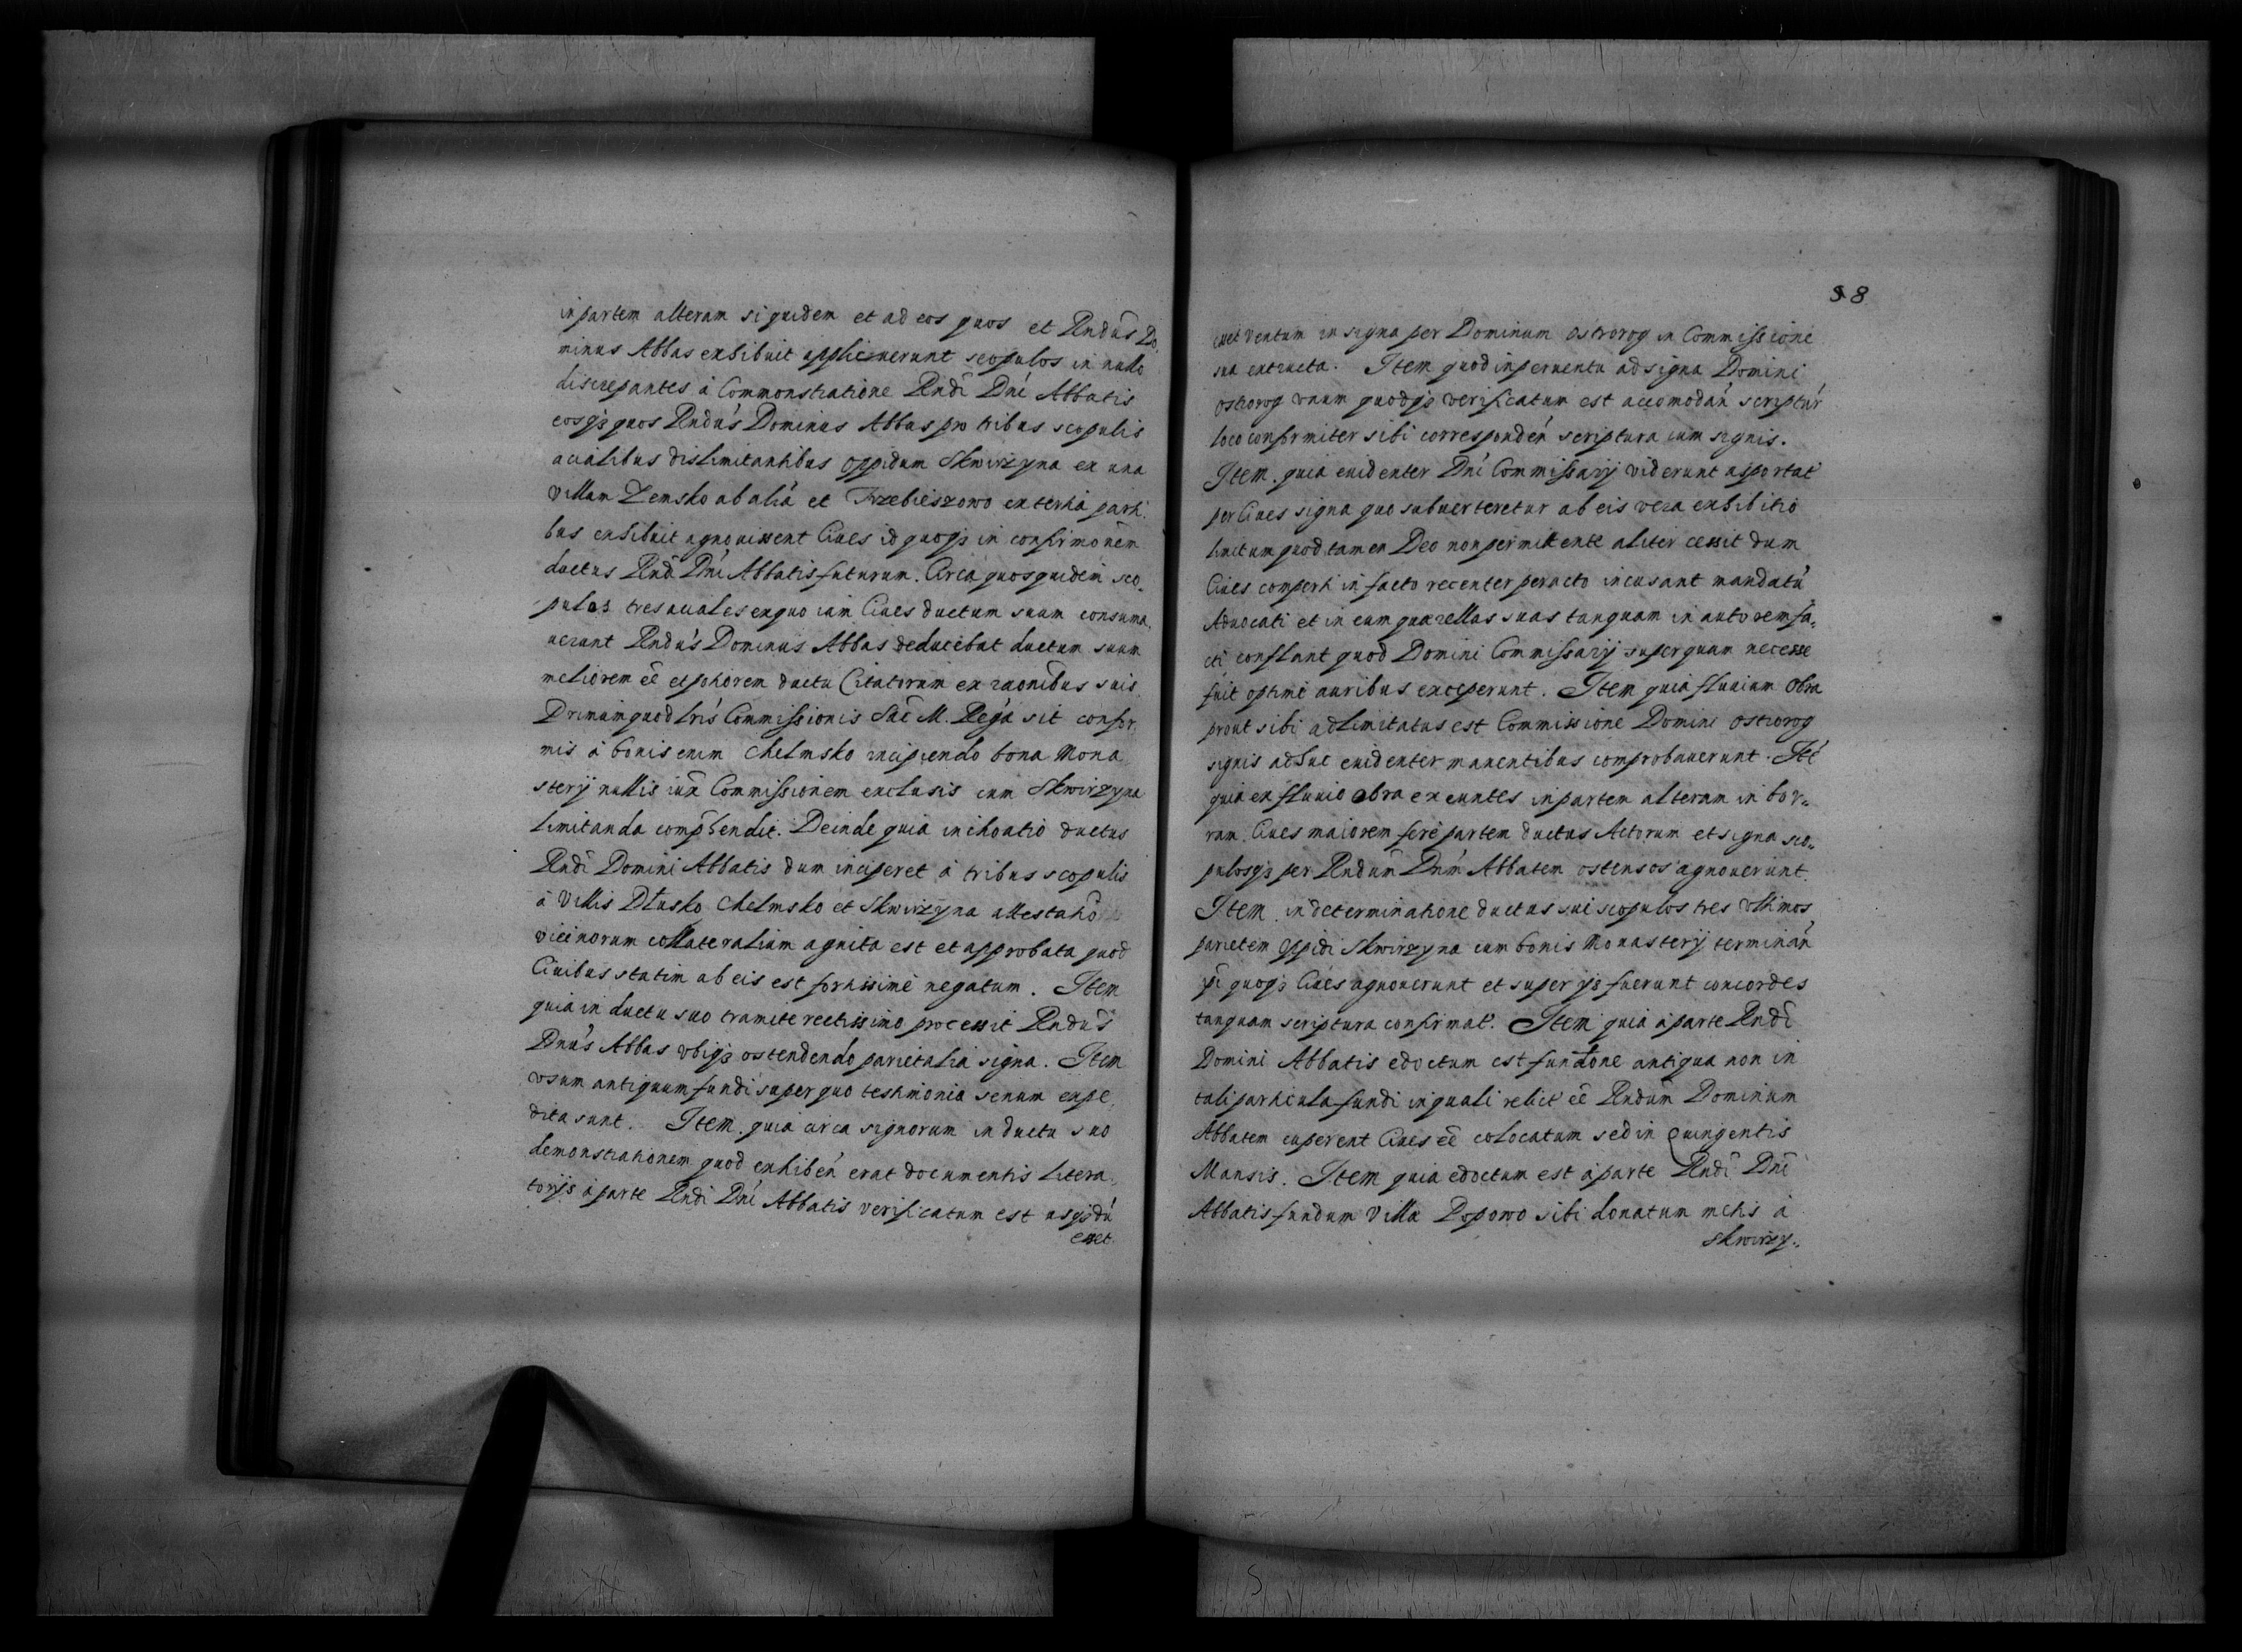 in partem alteram siquidem et ad eos quos et Rndūs Do,
minus Abbas exhibuit applicuerunt scopulos in nullo
discrepantes à Commonstratione Rndi Dni Abbatis
eosqз quos Rndus Dominus Abbas pro tribus scopulis
acialibus dislimitantibus oppidum Skwirzyna ex una
villam Zemsko ab aliā et Trzebieszowo ex tertia parti,
bus exhibuit agnovissent Cives id quoqз in confirmōnem
ductus Rnd Dni Abbatis futurum. Circa quos quidem sco,
pulos tres aciales ex quo iam Cives ductum suum consuma,
verunt Rndus Dominus Abbas deducebat ductum suum
meliorem eē et potiorem ductu Citatorum ex raonibus suis
Primum quod lris Commissionis Sac̄ M. Rega sit confor,
mis à bonis enim Chelmsko incipiendo bona Mona
sterij nullis iux̄ Commissionem exclusis cum Skwirzyna
limitanda comp̄hendit. Deinde quia inchoatio ductus
Rndi Domini Abbatis dum inciperet à tribus scopulis
à Villis Dłusko Chelmsko et Skwirzyna attestatiō
vicinorum collateralium agnita est et approbata quod
Civibus statim ab eis est fortissime negatum. Item
quia in ductu suo tramite rectissimo processit Rndus
Dnus Abbas ubiqз ostendendo parietalia signa. Item
usum antiquum fundi super quo testimonia senum expe,
dita sunt. Item quia circa signorum in ductu suo
demonstrationem quod exhiben̄ erat documentis litera,
torijs à parte Rndi Dni Abbatis verificatum est usqз dū
esset
38
esset ventum in signa per Dominum Ostrorog in Commissione
sua extructa. Item quod in perventu ad signa Domini
Ostrorog unum quodqз verificatum est accomodan̄ scriptur̄
loco conformiter sibi corresponden̄ scriptura cum signis.
Item quia evidenter Dni Commissarij viderunt asportat̄
per Cives signa quo subverteretur ab eis vera exhibitio
limitum quod tamen Deo non permittente aliter cessit dum
Cives comperti in facto recenter peracto incusant mandatū
Advocati et in eum quærellas suas tanquam in autorem fa,
cti conflant quod Domini Commissarij superquam necesse
fuit optime auribus exceperunt. Item quia fluvium Obra
prout sibi adlimitatus est Commissione Domini Ostrorog
signis adhuc evidenter manentibus comprobaverunt. Itē
quia ex fluvio Obra exeuntes in partem alteram in bor,,
ram Cives maiorem fere partem ductus Actorum et signa sco,,
pulosqз per Rndum Dnm Abbatem ostensos agnoverunt.
Item in determinatione ductus sui scopulos tres ultimos
parietem oppidi Skwirzyna cum bonis Monasterij terminan̄
pī quoqз Cives agnoverunt et super ijs fuerunt concordes
tanquam scriptura confirmat. Item quia à parte Rndi
Domini Abbatis edoctum est fundōne antiqua non in
tali particula fundi in quali relict̄ eē Rndum Dominum
Abbatem cuperent Cives eē colocatum sed in Quingentis
Mansis. Item quia edoctum est à parte Rndi Dni
Abbatis fundum Villa Popowo sibi donatum metis à
Skwirzy,,